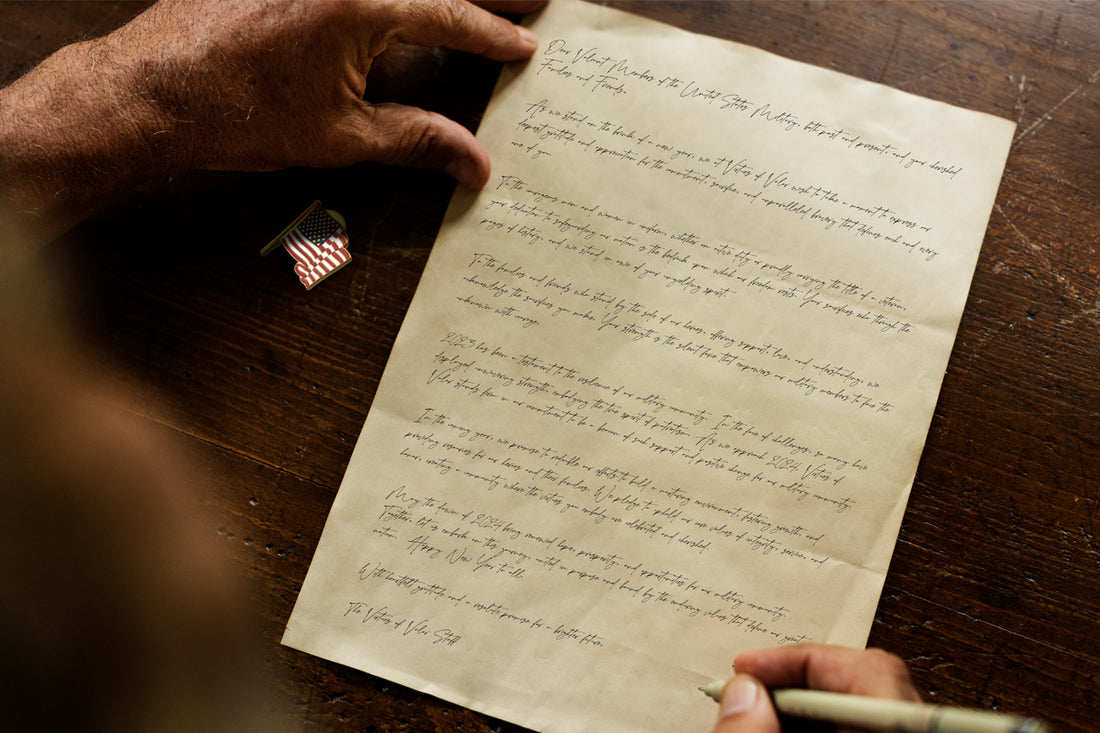 Dear Valiant Members of the United States Military, both past and present, and your cherished
Families and Friends,
As we stand on the brink of a new year, we at Virtues of Valor wish to take a moment to express our
deepest gratitude and appreciation for the commitment, sacrifice, and unparalleled bravery that defines each and every
one of you.
To the courageous men and women in uniform, whether on active duty or proudly carrying the title of a veteran,
your dedication to safeguarding our nation is the bedrock upon which our freedom rests. Your sacrifices echo through the
pages of history, and we stand in awe of your unyielding spirit.
To the families and friends who stand by the side of our heroes, offering support, love, and understanding, we
acknowledge the sacrifices you make. Your strength is the silent force that empowers our military members to face the
unknown with courage.
2023 has been a testament to the resilience of our military community. In the face of challenges, so many have
displayed unwavering strength, embodying the true spirit of patriotism. As we approach 2024, Virtues of
Valor stands firm in our commitment to be a beacon of such support and positive change for our military community.
In the coming year, we promise to redouble our efforts to build a nurturing environment, fostering growth, and
providing resources for our heroes and their families. We pledge to uphold our core values of integrity, service, and
honor, creating a community where the virtues you embody are celebrated and cherished.
May the dawn of 2024 bring renewed hope, prosperity, and opportunities for our military community.
Together, let us embark on this journey, united in purpose and bound by the enduring values that define our great
nation. Happy New Year to all.
With heartfelt gratitude and a resolute promise for a brighter future,
The Virtues of Valor Staff